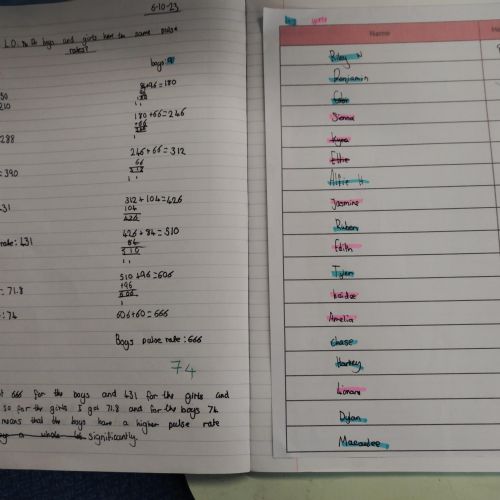 6-10-23
L.O. do boys and girls have the same pulse
rates?
boys:
84+96=180
180+66=246
+66
246
246+66=312
66
312
312+104=426
104
426
426+84=510
84
510
510+96=606
+96
606
606+60=666
Boys pulse rate: 666
74
210
288
= 390
431
rate: 431
= 71.8
: 74
666 for the boys and 431 for the girls and
so for the girls I got 71.8 and for the boys 74
means that the boys have a higher pulse rate
a whole significantly.
girls
Name
Riley N
Benjamin
Sienna
Kyra
Ellie
Alfie H
Jasmine
Ruben
Edith
Tyler
Amelia
Chase
Harley
Dylan